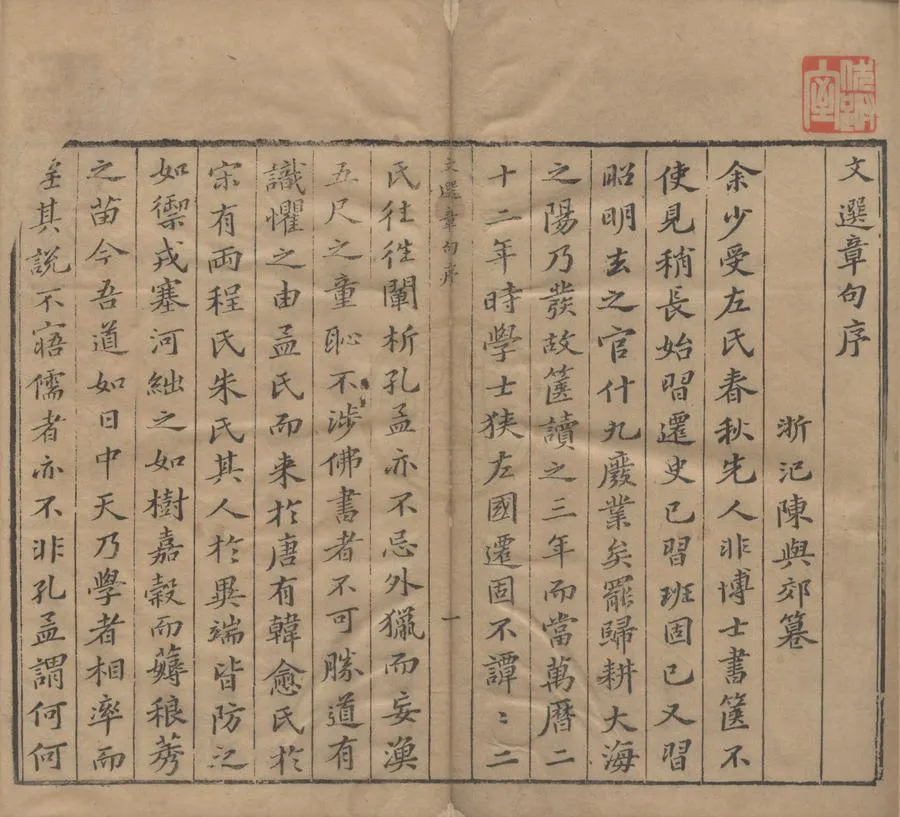 文選章句序
浙汜陳與郊纂
余少受左氏春秋先人非博士書篋不
使見稍長始習遷史已習班固已又習
昭明去之官什九廢業矣罷歸耕大海
之陽乃發故篋讀之三年而當萬曆二
十二年時學士狹左國遷固不譚〻二
文選章句序
一
氏往徃闡析孔孟亦不忌外獵而妄漁
五尺之童恥不涉佛書者不可勝道有
識懼之由孟氏而来於唐有韓愈氏於
宋有兩程氏朱氏其人於異端皆防之
如禦戎塞河絀之如樹嘉穀而薅稂莠
之苗今吾道如日中天乃學者相率而
其說不寤儒者亦不非孔孟謂何何